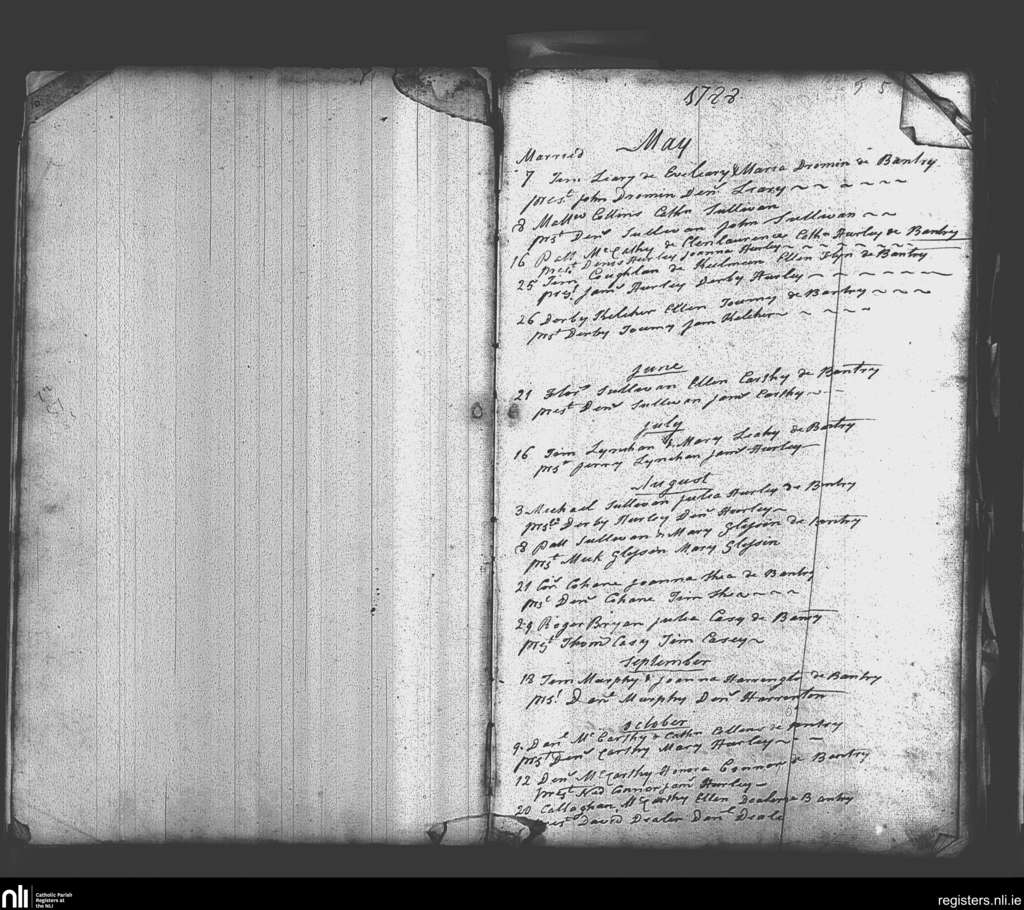 1788
May
Married
7 Tim Leary de Eveleary & Maria Dromin de Bantry
prest John Dromin Denš Leary
8 Mattw Collins Cathn Sullivan
prst Denš Sullivan John Sullivan
16 Patt McCathy de Clenlaurence Cathn Hurley de Bantry
prest Denis Hurley Joanna Hurley
25 Tim Coughlan de Ellen Flyn de Bantry
prest Jams Hurley Derby Hurley
26 Derby Kelcher Ellen Toumy de Bantry
prst Derby Toumy Jam Kelcher
June
21 Flors Sullivan Ellen Carthy de Bantry
prest Denš Sullivan Jams Carthy
July
16 Tim Lynchan & Mary Leahy de Bantry
prst Jerry Lynchan Jams Hurley
August
3 Michael Sullivan Julia Hurley de Bantry
prsts Derby Hurley Denš Hurley
8 Patt Sullivan & Mary Glesson de Bantry
prst Mick Glesson Mary Glesson
21 Cors Cohane Joanna Shea de Bantry
prst Denš Cohane Tim Shea
29 Roger Bryan Julia Casy de Banry
prst Thom Casy Tim Casey
September
18 Tim Murphy & Joanna de Bantry
prst Danl Murphy Denš Harrenton
October
9 Danl McCarthy & Cathn Collens de Bantry
prst Denš Carthy Mary Hurley
12 Denš McCarthy Honora Connor de Bantry
prest Ned Connor Jams Hurley
20 Callaghan McCarthy Ellen Bantry
prest David Danl
nli
Catholic Parish
Registers at
the NLI
registers.nli.ie